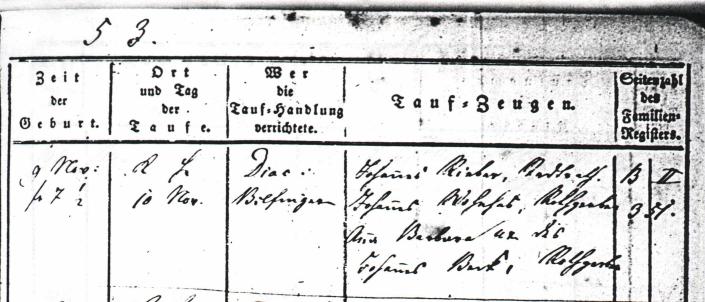 53.
Zeit
der
Geburt.
Ort
und Tag
der
Taufe.
Wer
die
Tauf-Handlung
verrichtete.
Tauf-Zeugen.
Seitenzahl
des
Familien-
Registers.
9 Nov:
10 Nov.
Diac:
Bilfinger
Johannes Rieber, Stadtrath.
Johannes Rothgerber
Anna Barbara ux des
Johannes Beck, Rothgerber
B II
351.